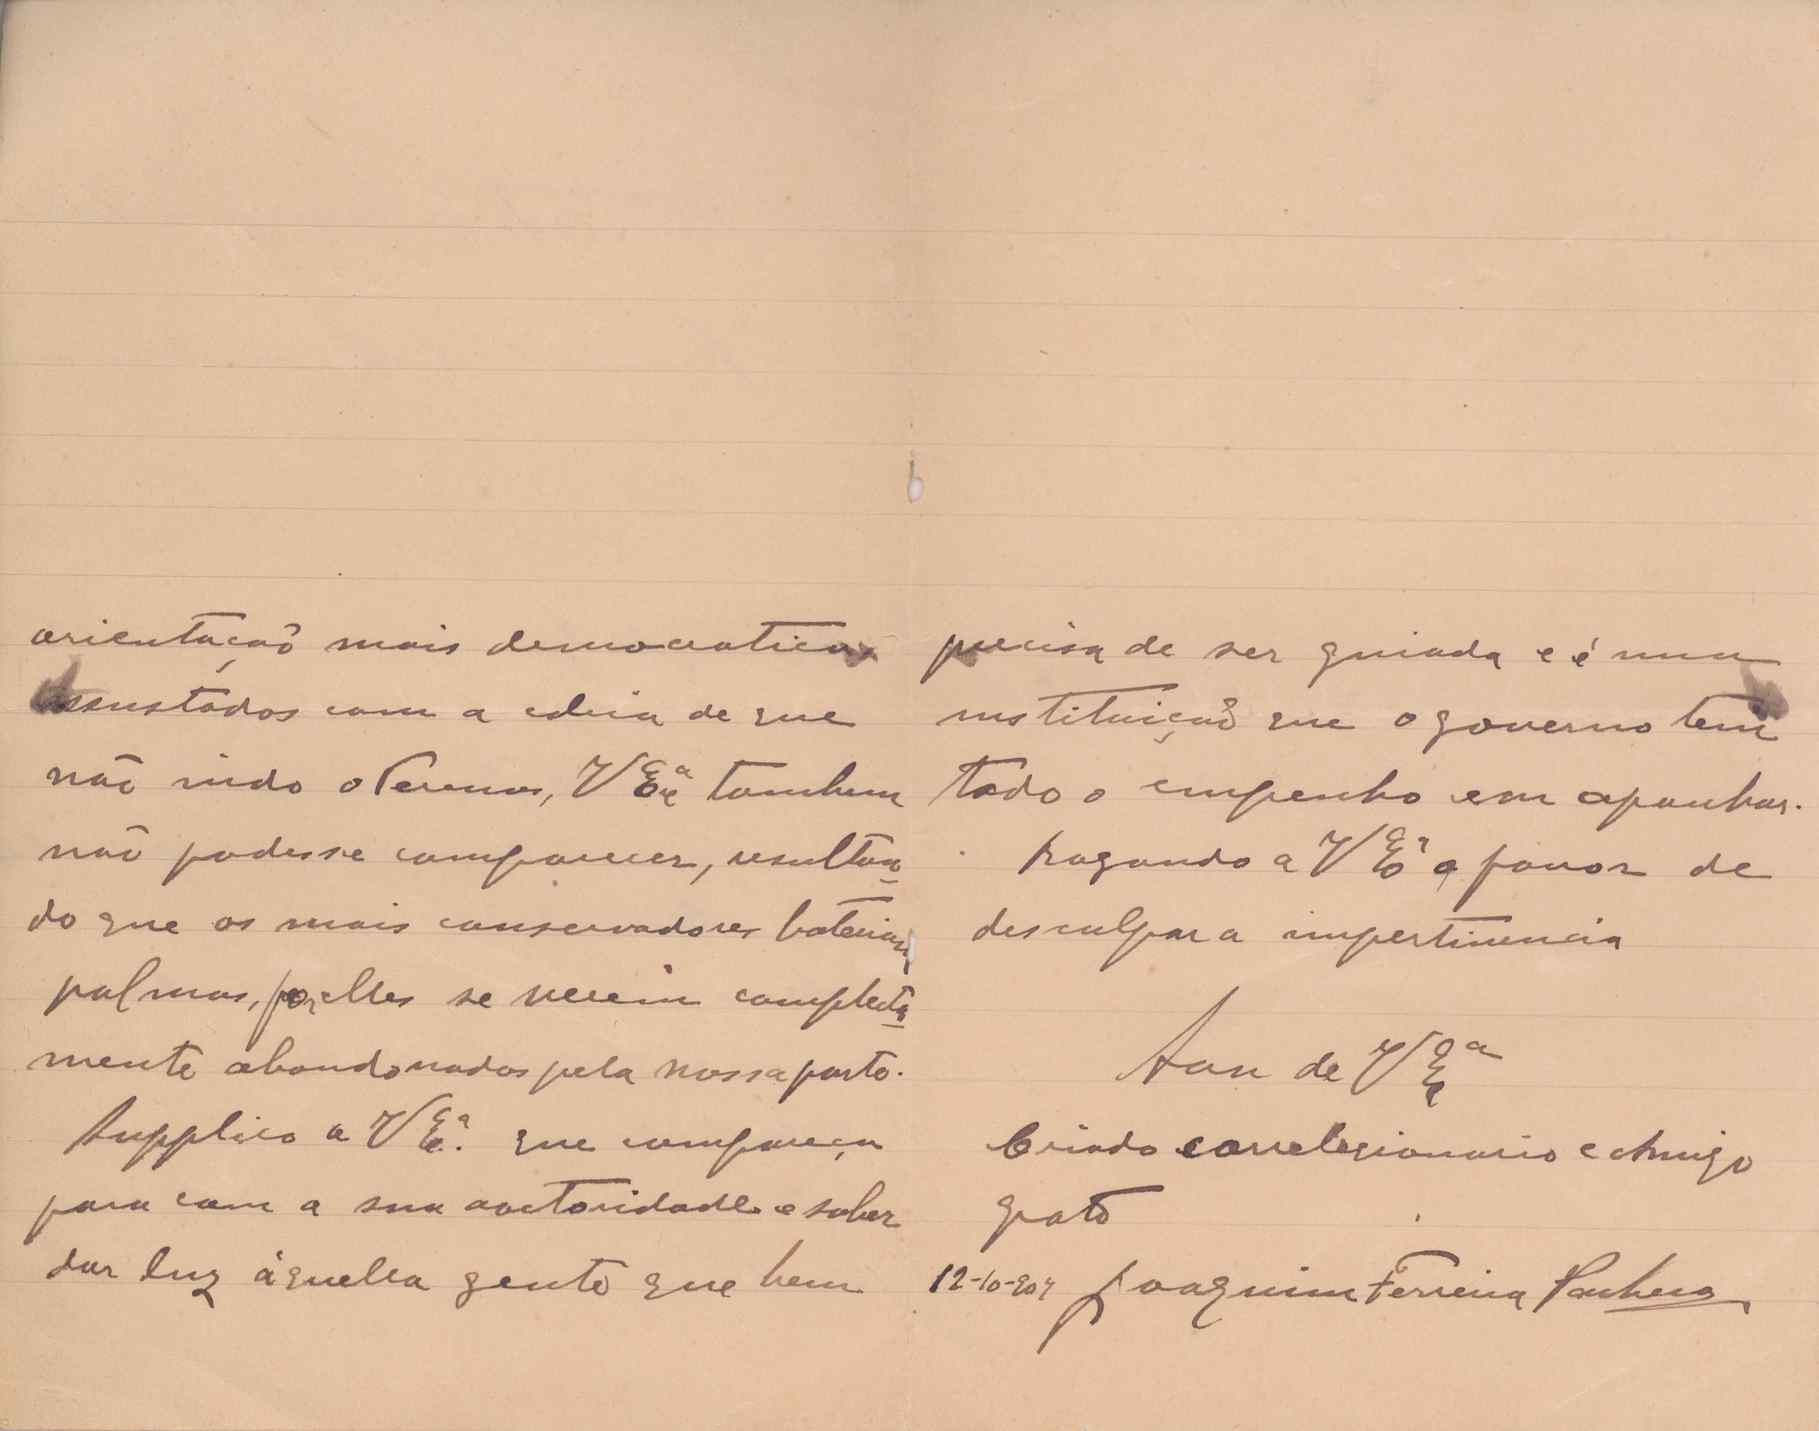 orientação mais democratica
assustados com a edeia de que
não indo o Veremos, V Exª tambem
não podesse comparecer, resultan
do que os mais conservadores bateriam
palmas, por elles se verem completa
mente abandonados pela nossa parte.
Supplico a V Exª. que compareça
para com a sua auctoridade e saber
dar luz áquella gente que bem
precisa de ser guiada e é uma
instituição que o governo tem
todo o empenho em apanhar.
Rogando a V Exª o favor de
desculpar a impertinencia
Sou de V Exª
Criado correlegionario e Amigo
grato
12-10-907 Joaquim Ferreira